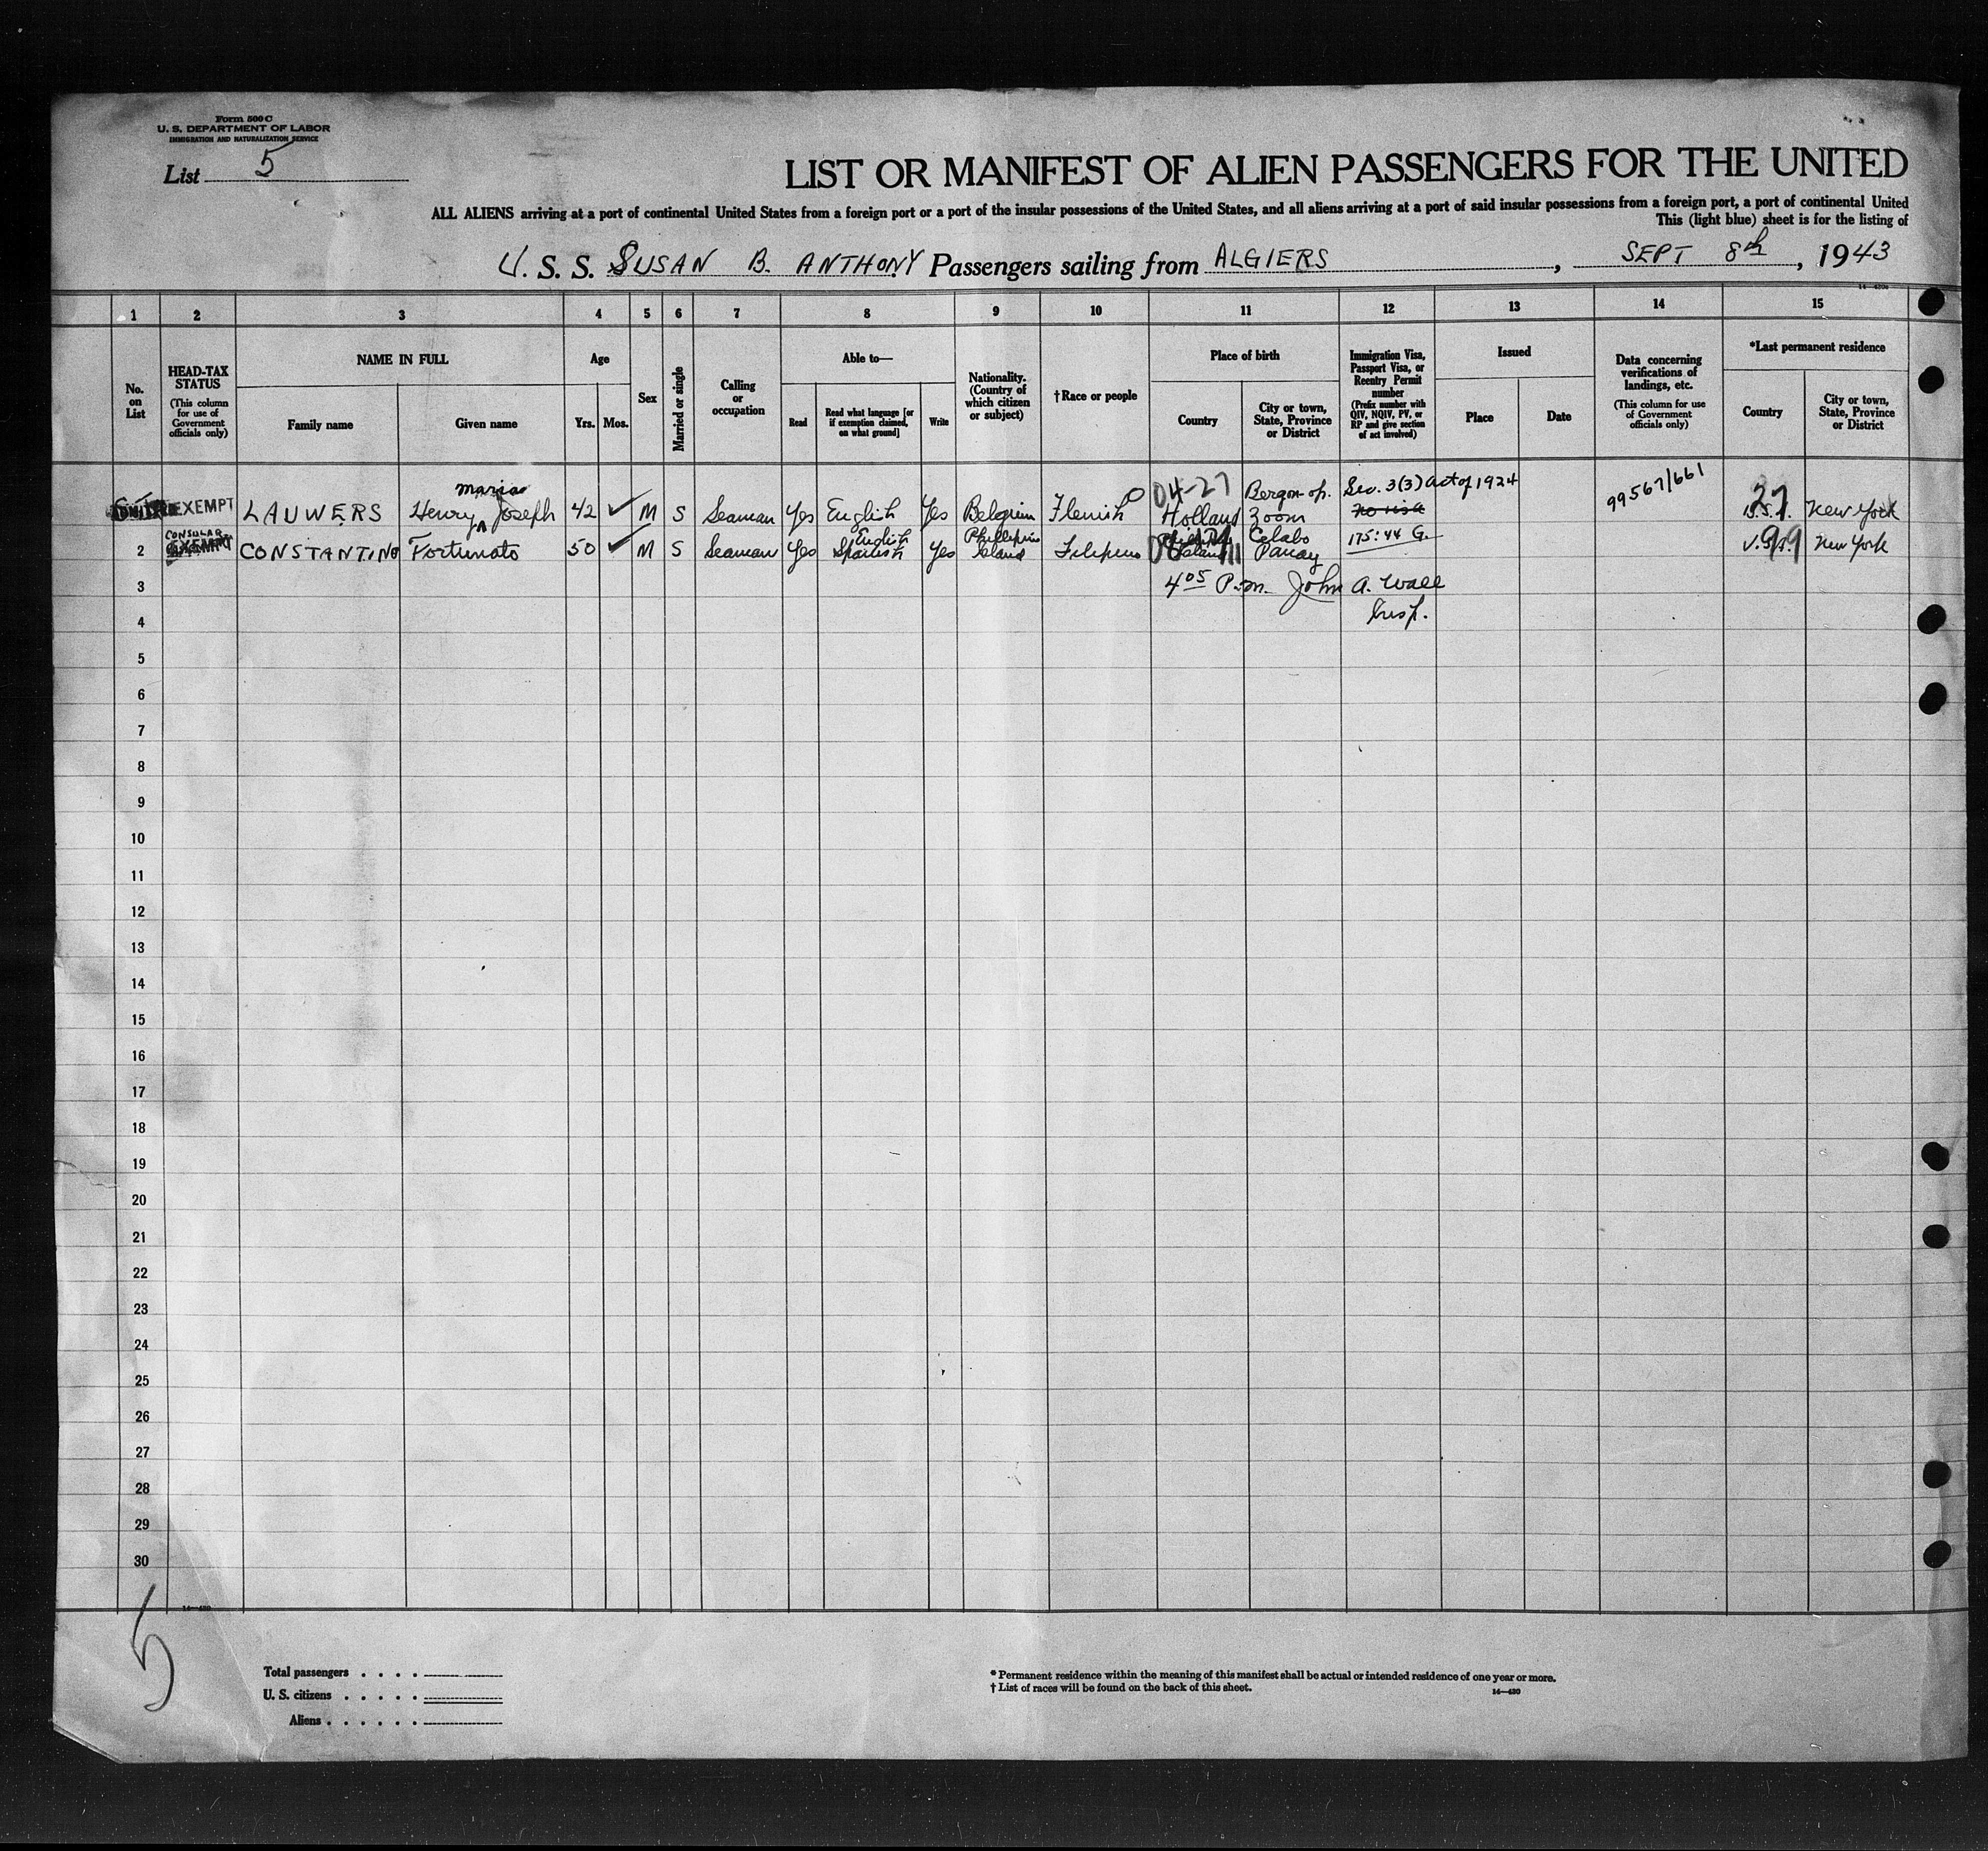 Form 500 C
U. S. DEPARTMENT OF LABOR
IMMIGRATION AND NATURALIZATION SERVICE
List 5
LIST OR MANIFEST OF ALIEN PASSENGERS FOR THE UNITED
ALL ALIENS arriving at a port of continental United States from a foreign port or a port of the insular possessions of the United States, and all aliens arriving at a port of said insular possessions from a foreign port, a port of continental United
This (light blue) sheet is for the listing of
U. S. S. SUSAN B. ANTHONY Passengers sailing from ALGIERS, SEPT 8th, 1943
1 2 3 4 5 6 7 8 9 10 11 12 13 14 15
No. on List
HEAD-TAX STATUS
(This column for use of Government officials only)
NAME IN FULL
Family name
Given name
Age
Yrs.
Mos.
Sex
Married or single
Calling or occupation
Able to—
Read
Read what language [or if exemption claimed, on what ground]
Write
Nationality. (Country of which citizen or subject)
† Race or people
Place of birth
Country
City or town, State, Province or District
Immigration Visa, Passport Visa, or Reentry Permit number
(Prefix number with QIV, NQIV, PV, or RP and give section of act involved)
Issued
Place
Date
Data concerning verifications of landings, etc.
(This column for use of Government officials only)
*Last permanent residence
Country
City or town, State, Province or District
EXEMPT LAUWERS Henry Maria Joseph 42 M S Seaman Yes English Yes Belgium Flemish 04-27 Holland Bergen op. Zoom Sec. 3(3) Act of 1924 no visa 99567/661 27 U.S.A. New York
2 CONSULAR EXEMPT CONSTANTINO Fortunato 50 M S Seaman Yes English Spanish Yes Phillipine Island Filipino Island Panay 175:44 G. 99 U.S.A. New York
3 4 05 P.m. John A. Wall
4 Insp.
5
6
7
8
9
10
11
12
13
14
15
16
17
18
19
20
21
22
23
24
25
26
27
28
29
30
5
14—430
Total passengers
U. S. citizens
Aliens
* Permanent residence within the meaning of this manifest shall be actual or intended residence of one year or more.
† List of races will be found on the back of this sheet.
14—430